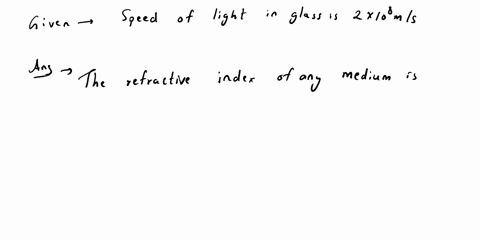 Given → Speed of light in glass is 2 × 10⁸ m/s
Ans → The refractive index of any medium is